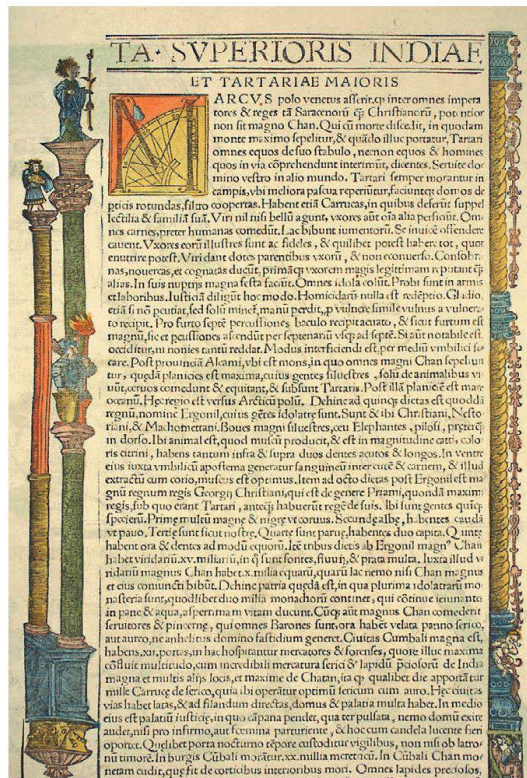 TA· SVPERIORIS INDIAE
ET TARTARIAE MAIORIS
MARCVS polo venetus asserit.ꝙ inter omnes impera
tores & reges tā Saracenorū qꝫ Christianorū, potentior
non sit magno Chan. Qui cū morte discedit, in quodam
monte maximo sepelitur, & quādo illuc portatur, Tartari
omnes equos de suo stabulo, necnon equos & homines
quos in via cōprehendunt interimūt, dicentes, Seruite do
mino vestro in alio mundo. Tartari semper morantur in
campis, vbi meliora pascua reperiūtur, faciuntqꝫ domos de
pticis rotundas, filtro coopertas. Habent etiā Carrucas, in quibus deferūt suppel
lectilia & familiā suā. Viri nil nisi bellū agunt, vxores aūt oīa alia perficiūt. Om
nes carnes, preter humanas comedūt. Lac bibunt iumentorū. Se inuicē offendere
cauent. Vxores eorū illustres sunt ac fideles, & quilibet potest habere tot, quot
enutrire potest. Viri dant dotes parentibus vxorū, & non econuerso. Consobri
nas, nouercas, et cognatas ducūt, primāqꝫ vxorem magis legittimam reputant qꝫ
alias. In suis nuptijs magna festa faciūt. Omnes idola colūt. Probi sunt in armis
et laboribus. Iusticiā diligūt hoc modo. Homicidarū nulla est redēptio. Gladio,
etiā si nō percutiat, sed solū minet̄, manū perdit, ꝓ vulnere simile vulnus a vulnera
to recipit. Pro furto septē percussiones baculo recipit acuato, & sicut furtum est
magnū, sic et percussiones ascendūt per septenarū vsqꝫ ad septē. Si aūt notabile est
occiditur, ni nonies tantū reddat. Modus interficiendi est, per mediū vmbilici se
care. Post prouinciā Alanni, vbi est mons, in quo omnes magni Chan sepeliun
tur, quedā planicies est maxima, cuius gentes siluestres, solū de animalibus vi
uūt, ceruos comedunt & equitant, & subsunt Tartaris. Post illā planiciē est mare
oceanū. Hec regio est versus Arcticū polū. Dehinc ad quinqꝫ dietas est quoddā
regnū, nomine Ergonil, cuius gētes idolatre sunt. Sunt & ibi Christiani, Nesto
riani, & Machomettani. Boues magni siluestres, ceu Elephantes, pilosi, preterqꝫ
in dorso. Ibi animal est, quod muscū producit, & est in magnitudine catti, colo
ris citrini, habens tantum infra & supra duos dentes acutos & longos. In ventre
eius iuxta vmbilicū apostema generatur sanguineū inter cutē & carnem, & illud
extractū cum corio, muscus est optimus. Item ad octo dictas post Ergonil est ma
gnū regnum regis Georgij Christiani, qui est de genere Priami, quondā maximi
regis, sub quo erant Tartari, anteqꝫ habuerūt regē de suis. Ibi sunt gentes quinqꝫ
specierū. Prime multū magne & nigre vt coruus. Secunde albe, habentes caudā
vt pauo, Tertie sunt sicut nostre, Quarte sunt parue, habentes duo capita. Quinte
habent ora & dentes ad modū equorū. Itē tribus dietis ab Ergonil magnꝰ Chan
habet viridariū .xv. miliariū, in q̄ sunt fontes, fluuij, & prata multa. Iuxta illud vi
ridariū magnus Chan habet .x. milia equarū, quarū lac nemo nisi Chan magnus
et eius coniuncti bibūt. Dehinc patria quedā est, in qua plurima idolatrarū mo
nasteria sunt, quodlibet duo milia monachorū continet, qui cōtinue ieiunant
in pane & aqua, asperrimam vitam ducunt. Cūqꝫ aūt magnus Chan comederit
seruitores & pincerne, qui omnes Barones sunt, ora habēt velata panno serico,
aut aureo, ne anhelitus domino fastidium generet. Ciuitas Cumbali magna est,
habens .xij. portas, in hac hospitantur mercatores & forenses, quorē illuc maxima
cōfluit multitudo, cum incredibili mercatura serici & lapidū p̄ciosorū de India
magna et multis alijs locis, et maxime de Chatan, ita qꝫ qualibet die apportātur
mille Carrucę de serico, quia ibi operātur optimū sericum cum auro. Hęc ciuitas
vias habet latas, & ad filandum directas, domus & palatia multa habet. In medio
eius est palatiū iusticie, in quo cāpana pendet, qua ter pulsata, nemo domū exire
audet, nisi pro infirmo, aut femina parturiente, & hoc cum candela lucente fieri
oportet. Quęlibet porta nocturno tēpore custoditur vigilibus, non nisi ob latro
nū timorē. In burgis Cūbali morātur .xx. millia meretricū. In Cūbali Chan mo
netam cudit, quę fit de corticibus interioribus mori. Omnes lapides preciosos,